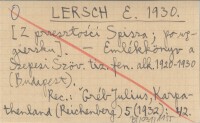 O LERSCH E. 1930.
[Z przeszłości Spisza, po wę-
giersku]. — Emlékkönyv a
Szepesi Szöv. tiz. fenn. alk. 1920-1930
(Budapest).
Rec.: Gréb Julius, Karpa-
thenland (Reichenberg) 5 (1932): 42.